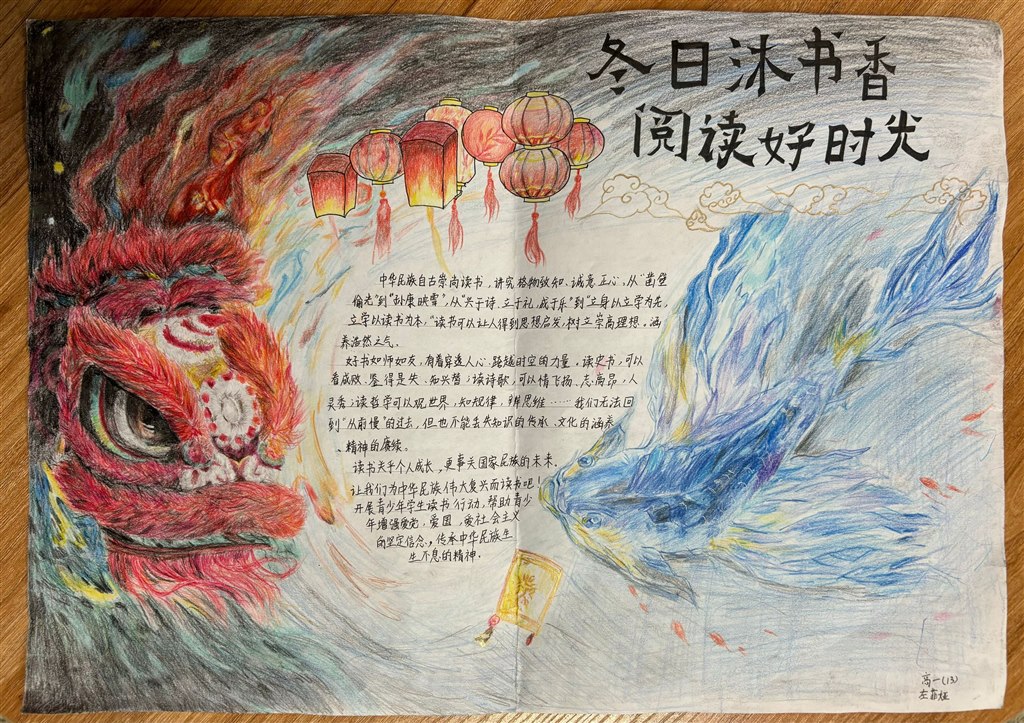 冬日沐书香
阅读好时光
中华民族自古崇尚读书，讲究格物致知、诚意正心。从“凿壁
偷光”到“孙康映雪”，从“兴于诗，立于礼，成于乐”到“立身以立学为先，
立学以读书为本，”读书可以让人得到思想启发，树立崇高理想，涵
养浩然之气。
好书如师如友，有着穿透人心、跨越时空的力量。读史书，可以
看成败、鉴得失、知兴替；读诗歌，可以情飞扬、志高昂、人
灵秀；读哲学可以观世界、知规律、辨思维……我们无法回
到“从前慢”的过去，但也不能丢失知识的传承、文化的涵养
、精神的赓续。
读书关乎个人成长，更事关国家民族的未来，
让我们为中华民族伟大复兴而读书吧！
开展青少年学生读书行动，帮助青少
年增强爱党、爱国、爱社会主义
的坚定信念，传承中华民族生
生不息的精神。
高一(13)
左